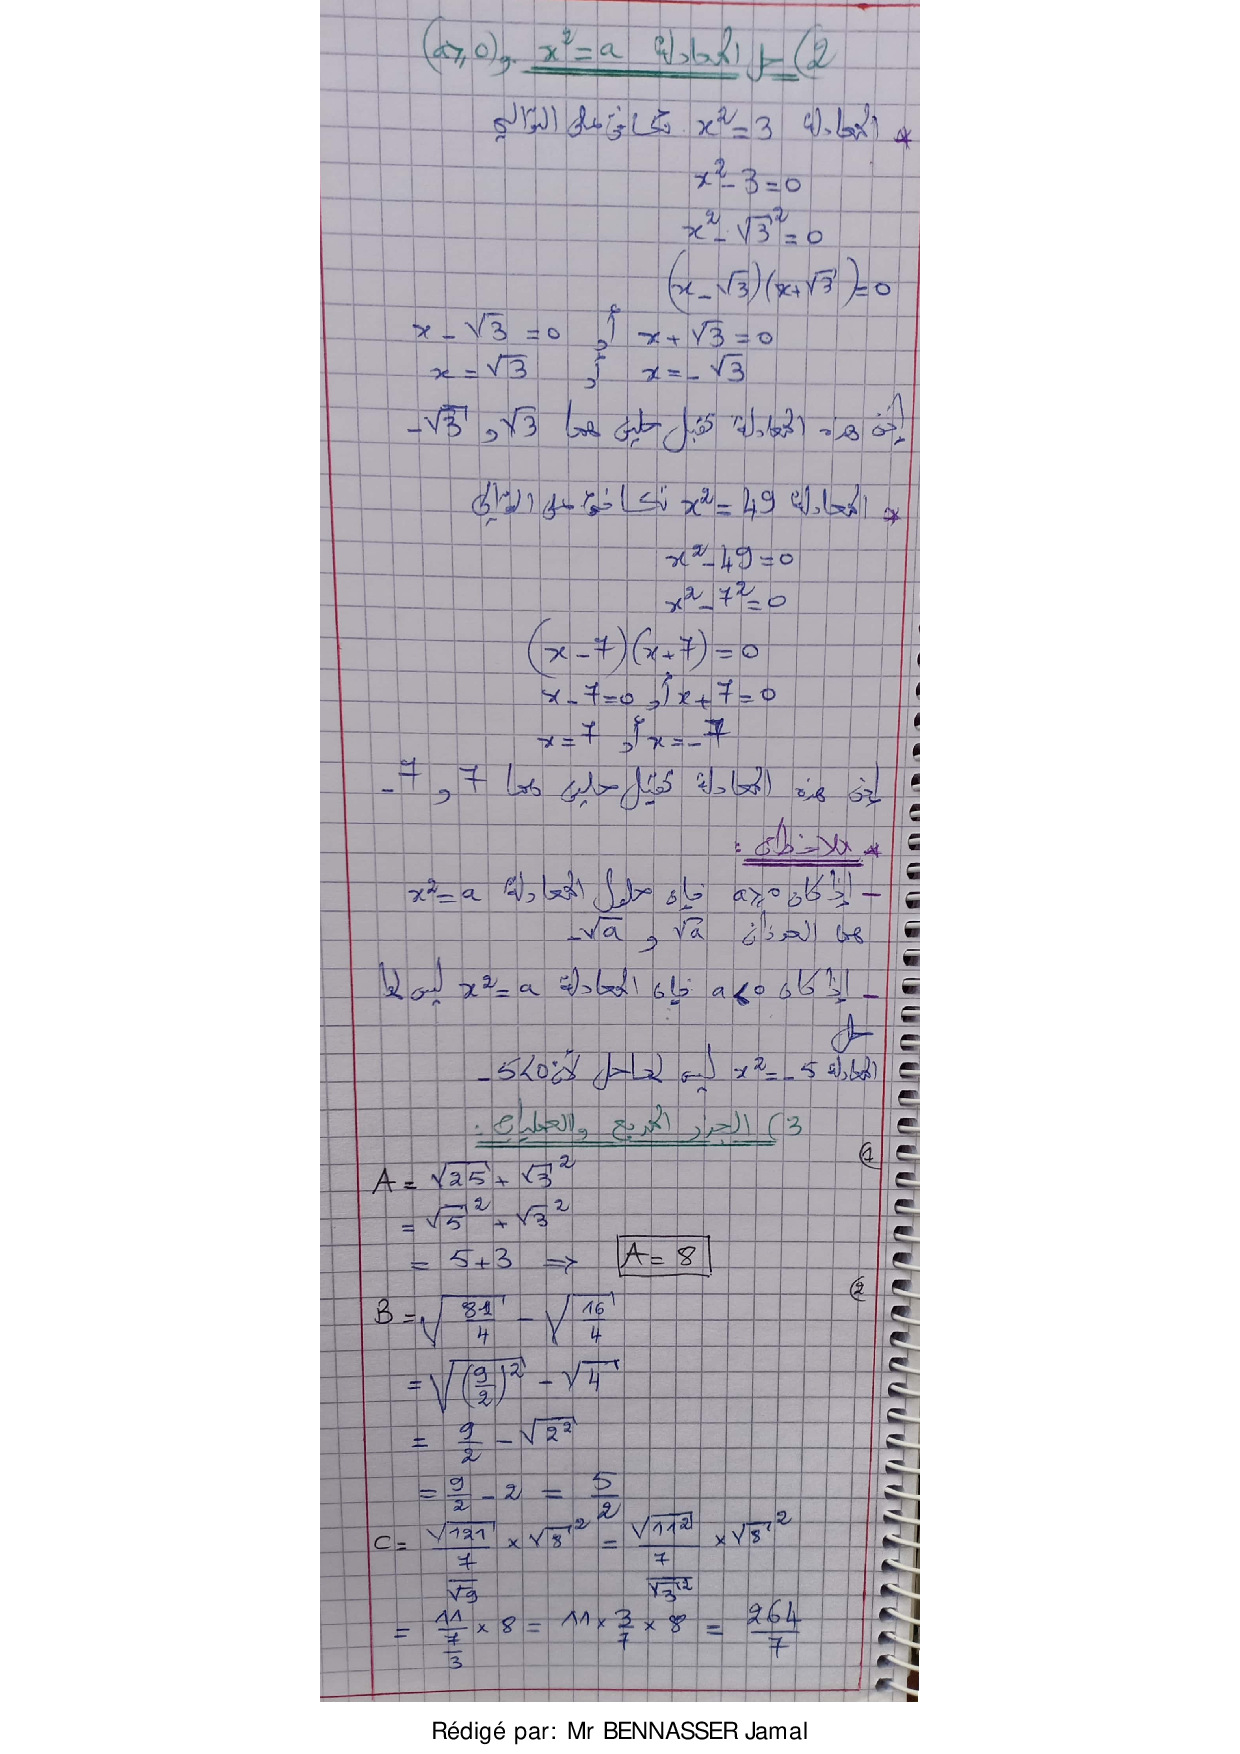 2) حل المعادلة x² = a و (a ≥ 0)
* المعادلة x² = 3 تكافئ على التوالي
x² - 3 = 0
x² - √3² = 0
(x - √3)(x + √3) = 0
x - √3 = 0 أو x + √3 = 0
x = √3 أو x = -√3
إذن هذه المعادلة تقبل حلين هما √3 و -√3
* المعادلة x² = 49 تكافئ على التوالي
x² - 49 = 0
x² - 7² = 0
(x - 7)(x + 7) = 0
x - 7 = 0 أو x + 7 = 0
x = 7 أو x = -7
إذن هذه المعادلة تقبل حلين هما 7 و -7
* ملاحظات :
- إذا كان a ≥ 0 فإن حلول المعادلة x² = a
هما العددان √a و -√a
- إذا كان a < 0 فإن المعادلة x² = a ليس لها
حل
المعادلة x² = -5 ليس لها حل لأن -5 < 0
3) الجذر المربع والعمليات :
①
A = √25 + √3²
= √5² + √3²
= 5 + 3 ⇒ A = 8
②
B = √(81/4) - √(16/4)
= √((9/2)²) - √4
= 9/2 - √2²
= 9/2 - 2 = 5/2
C = √121/(7/√9) × √8² = √11²/(7/√3²) × √8²
= 11/(7/3) × 8 = 11 × 3/7 × 8 = 264/7
Rédigé par: Mr BENNASSER Jamal